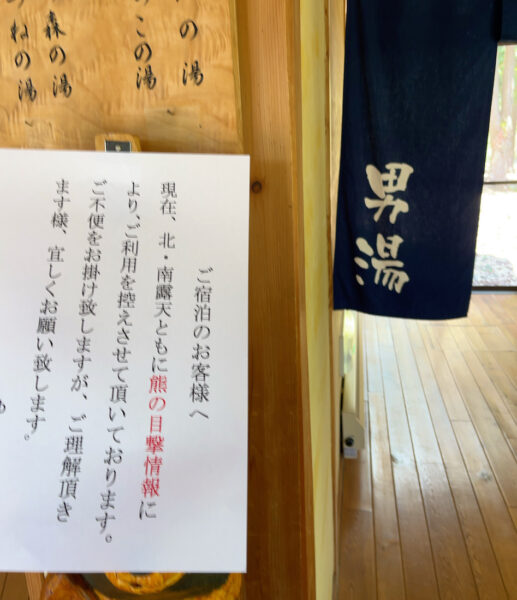 の湯
のこの湯
森の湯
ねの湯
男湯
ご宿泊のお客様へ
現在、北・南露天ともに熊の目撃情報に
より、ご利用を控えさせて頂いております。
ご不便をお掛け致しますが、ご理解頂き
ます様、宜しくお願い致します。